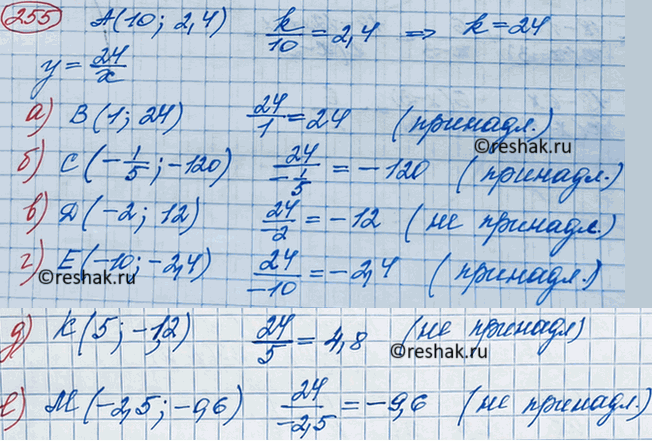 255 A(10; 2,4) k/10 = 2,4 ⇒ k = 24
y = 24/x
а) B(1; 24) 24/1 = 24 (принадл.)
©reshak.ru
б) C(-1/5; -120) 24/-1/5 = -120 (принадл.)
в) Д(-2; 12) 24/-2 = -12 (не принадл.)
г) E(-10; -2,4) 24/-10 = -2,4 (принадл.)
©reshak.ru
©reshak.ru
д) K(5; -1,2) 24/5 = 4,8 (не принадл)
©reshak.ru
е) M(-2,5; -0,6) 24/-2,5 = -9,6 (не принадл.)